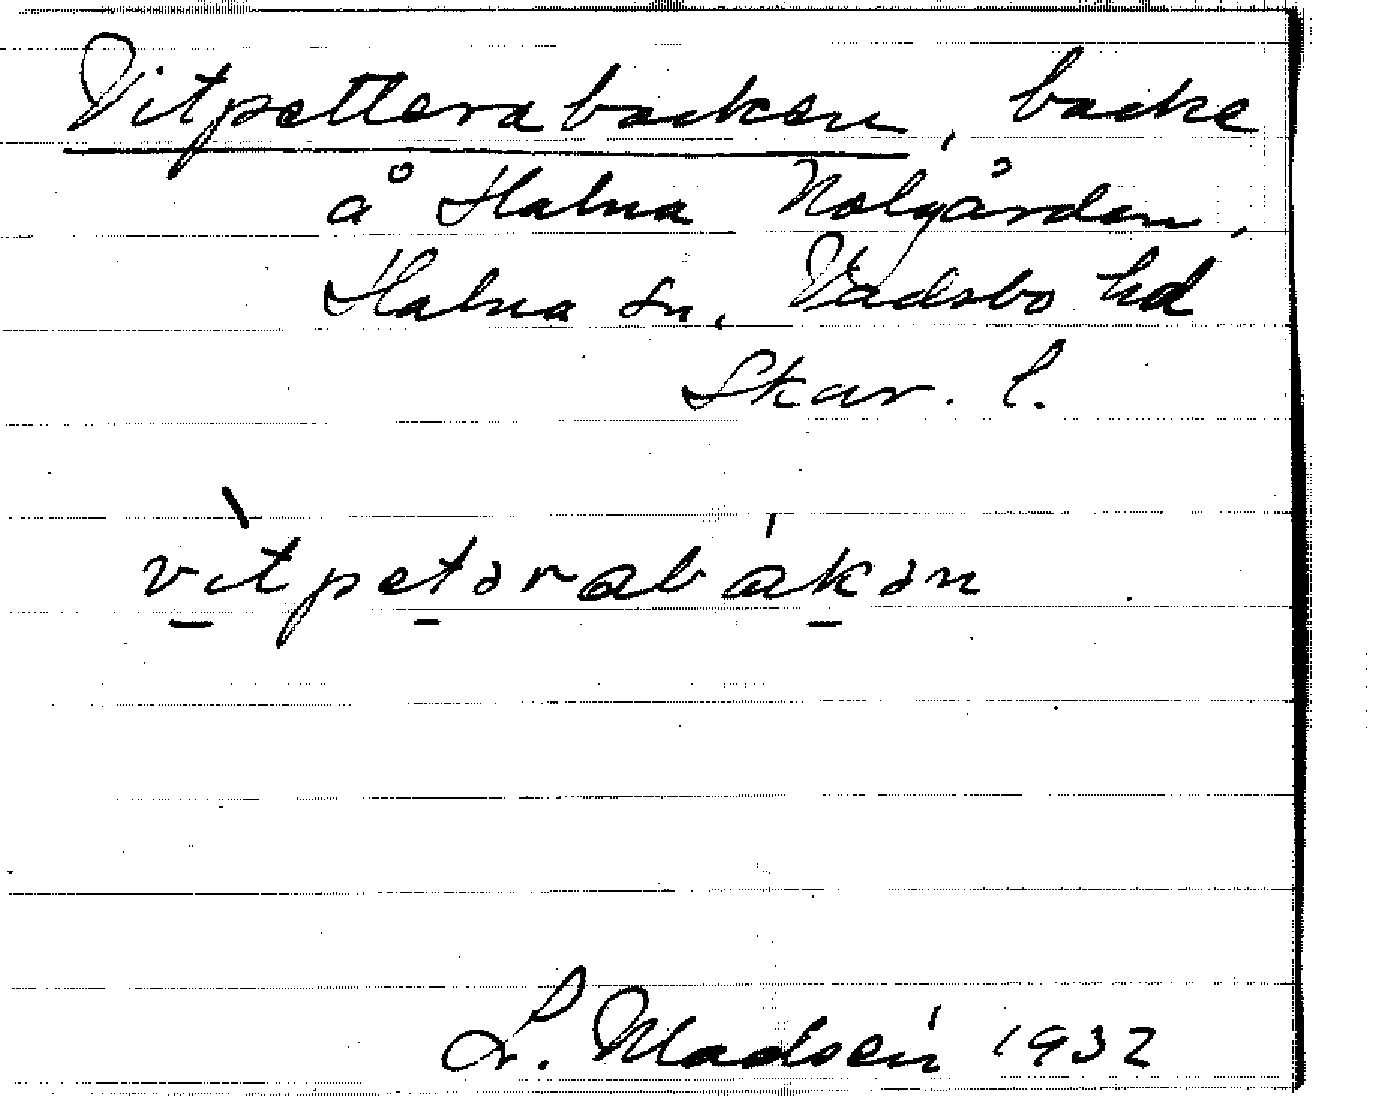 Vitpetterabacken, backe
å Halna Nolgården,
Halna sn, Vadsbo hd
Skar. l.
vìtpetərabákən
L. Madsén 1932